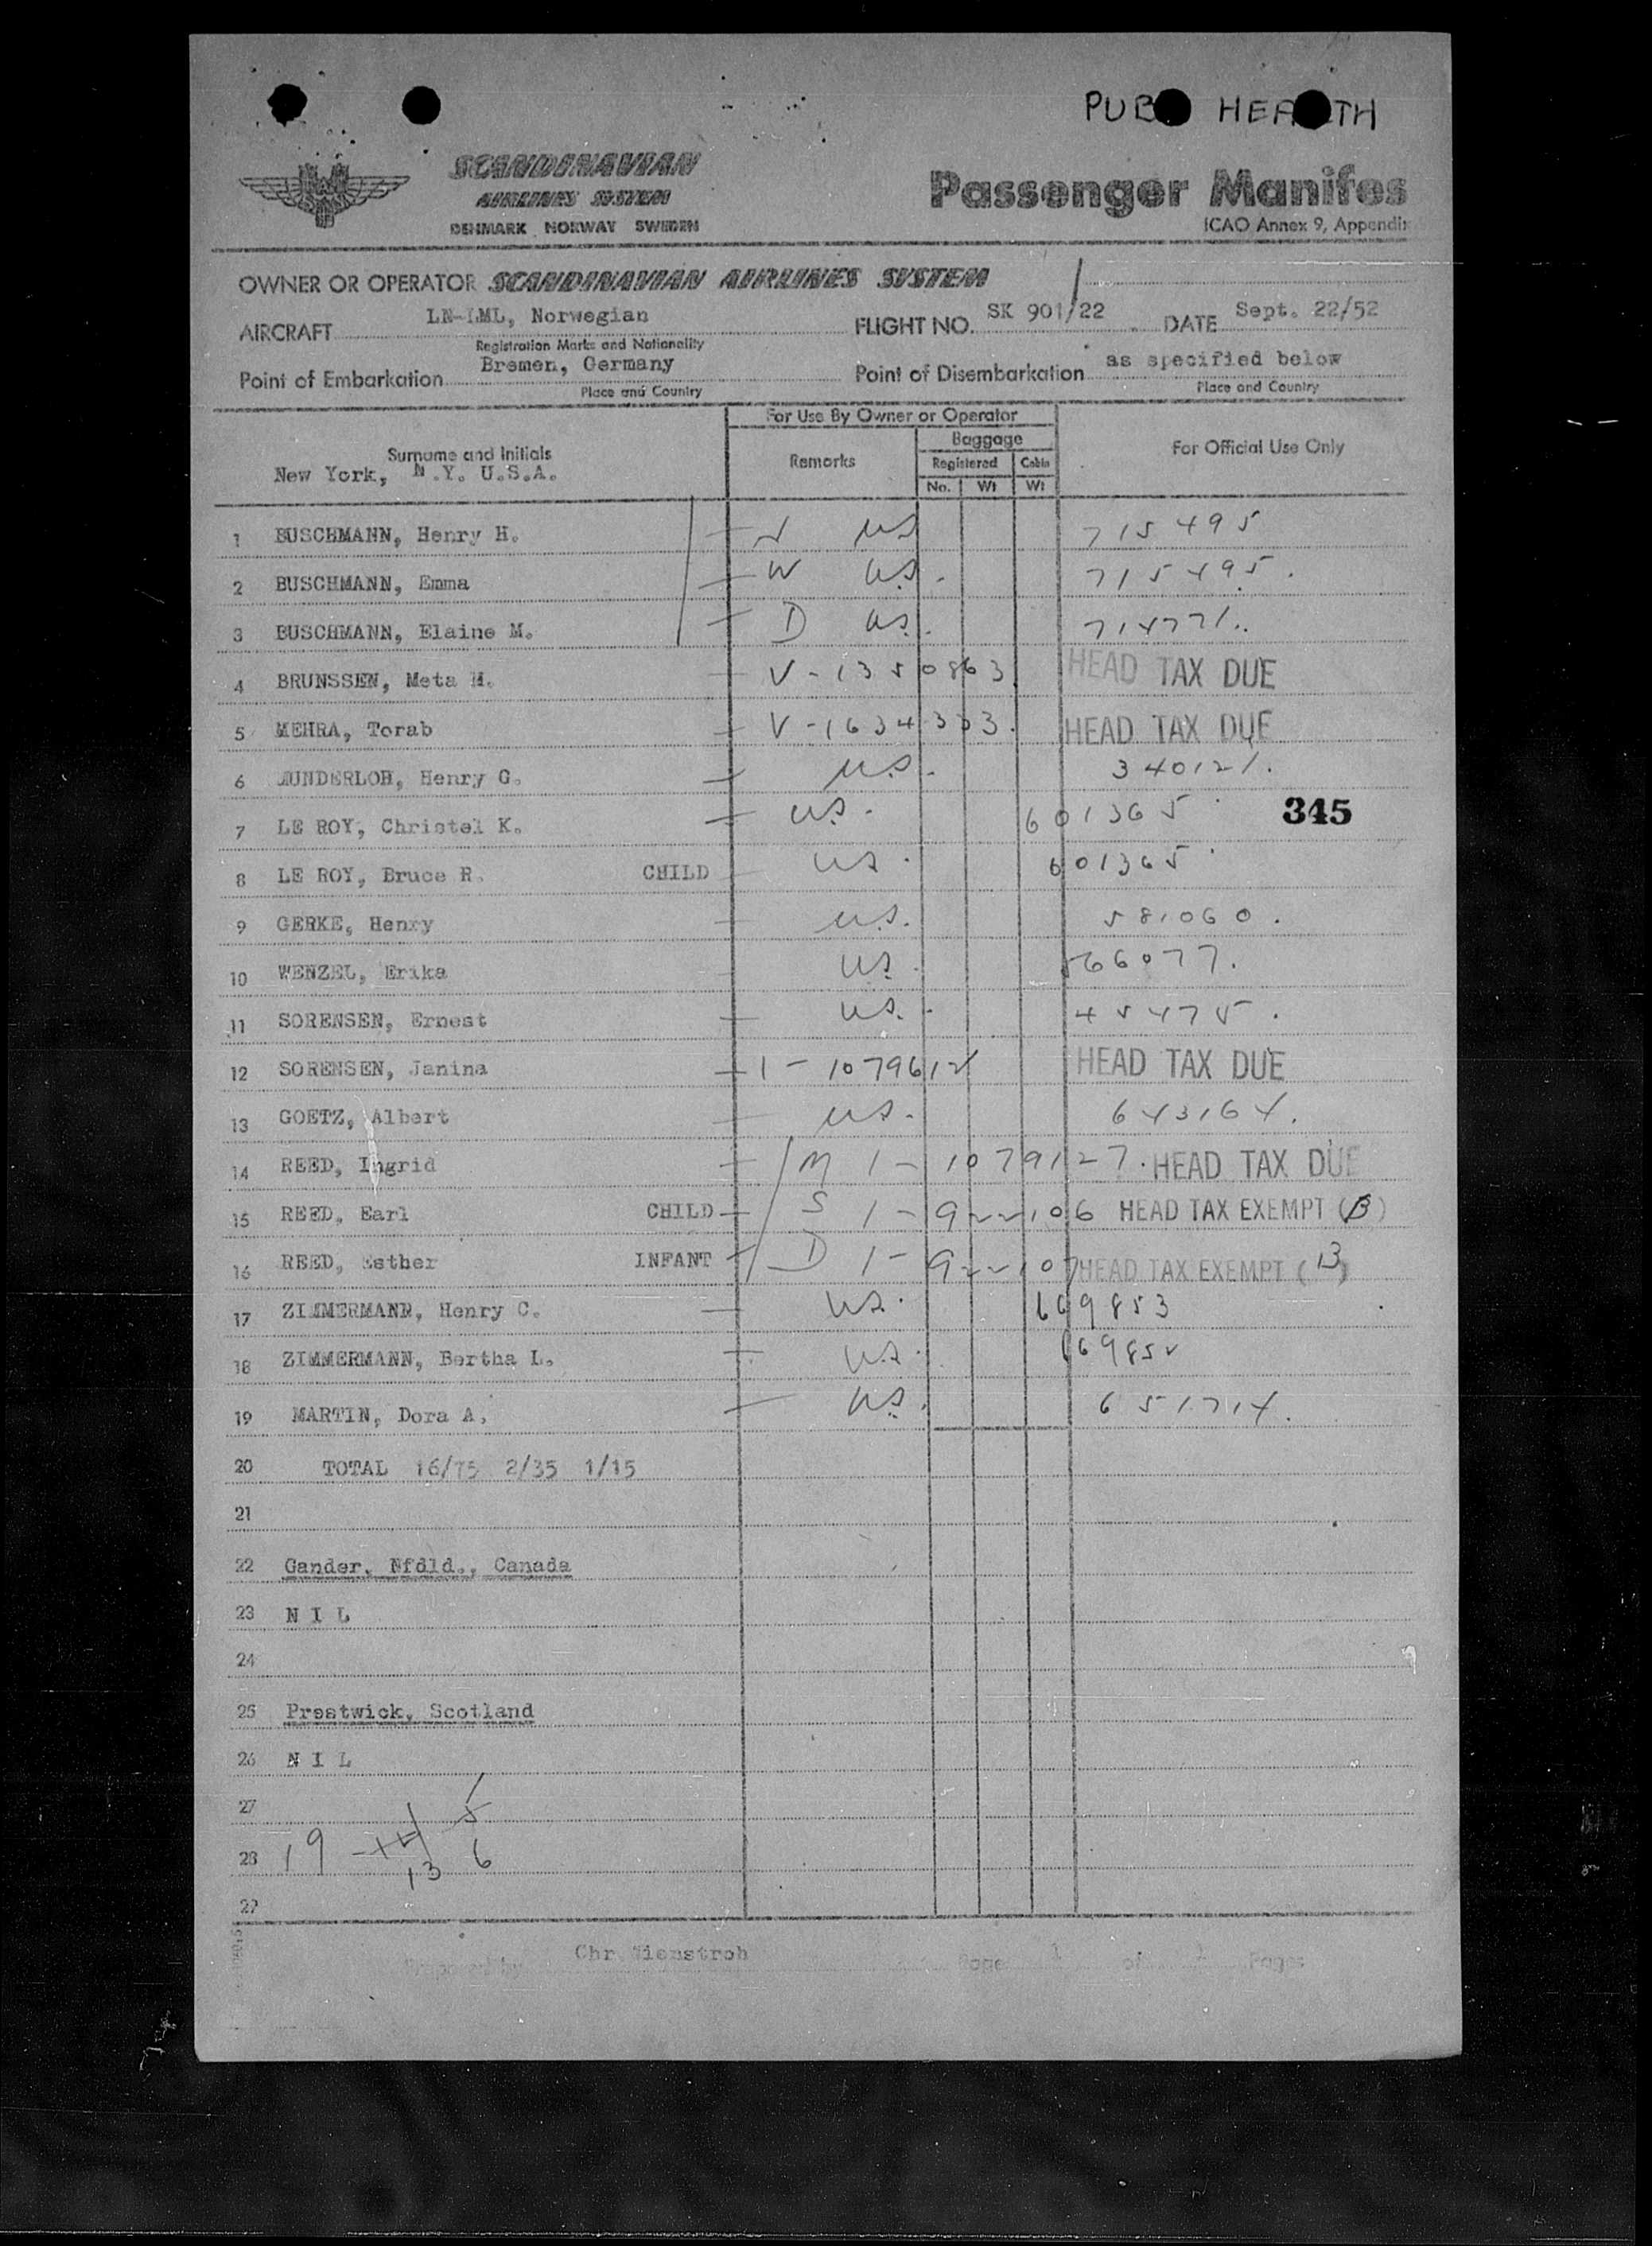 PUB HEA TH
SCANDINAVIAN
AIRLINES SYSTEM
DENMARK NORWAY SWEDEN
Passenger Manifes
ICAO Annex 9, Appendix
OWNER OR OPERATOR SCANDINAVIAN AIRLINES SYSTEM
AIRCRAFT LN-LML, Norwegian FLIGHT NO. SK 901/22 DATE Sept. 22/52
Registration Marks and Nationality
Point of Embarkation Bremen, Germany Point of Disembarkation as specified below
Place and Country Place and Country
For Use By Owner or Operator
Surname and Initials Remarks Baggage For Official Use Only
Registered Cabin
No. Wt Wt
New York, N.Y. U.S.A.
1 BUSCHMANN, Henry H. US 715495
2 BUSCHMANN, Emma W U.S. 715495.
3 BUSCHMANN, Elaine M. D U.S. 714771.
4 BRUNSSEN, Meta M. V-1350863 HEAD TAX DUE
5 MEHRA, Torab V-1634333. HEAD TAX DUE
6 MUNDERLOH, Henry G. U.S. 340121.
7 LE ROY, Christel K. U.S. 601365 345
8 LE ROY, Bruce R. CHILD U.S. 601365
9 GERKE, Henry U.S. 581060.
10 WENZEL, Erika U.S. 566077.
11 SORENSEN, Ernest U.S. 45475.
12 SORENSEN, Janina HEAD TAX DUE
13 GOETZ, Albert U.S. 643164.
14 REED, Ingrid M 1-1079127. HEAD TAX DUE
15 REED, Earl CHILD S 1-922106 HEAD TAX EXEMPT (B)
16 REED, Esther INFANT D 1-922107 HEAD TAX EXEMPT (B)
17 ZIMMERMANN, Henry C. U.S. 669853
18 ZIMMERMANN, Bertha L. U.S. 669852
19 MARTIN, Dora A. U.S. 651714.
20 TOTAL 16/75 2/35 1/15
21
22 Gander, Nfdld., Canada
23 N I L
24
25 Prestwick, Scotland
26 N I L
27 5
28 19 13 6
29
Prepared by Chr. Tienstroh Page 1 of 1 Pages